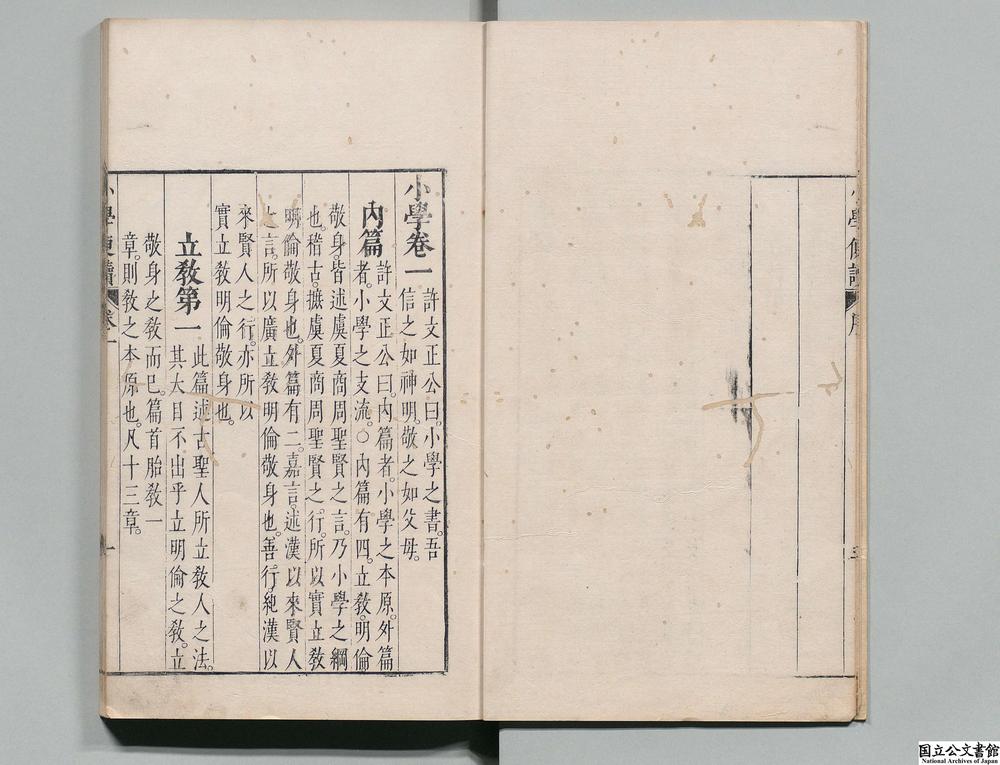 小學便讀 序
小學卷一
許文正公曰。小學之書。吾
信之如神明。敬之如父母。
內篇
許文正公曰。內篇者。小學之本原。外篇
者。小學之支流。○內篇有四。立教。明倫
敬身。皆述虞夏商周聖賢之言。乃小學之綱
也。稽古。摭虞夏商周聖賢之行。所以實立教
明倫敬身也。外篇有二。嘉言。述漢以來賢人
之言。所以廣立教明倫敬身也。善行。紀漢以
來賢人之行。亦所以
實立教明倫敬身也。
立教第一
此篇述古聖人所立教人之法。
其大目不出乎立明倫之教。立
敬身之教而已。篇首胎教一
章。則教之本原也。凡十三章。
小學便讀 卷一 一
国立公文書館
National Archives of Japan